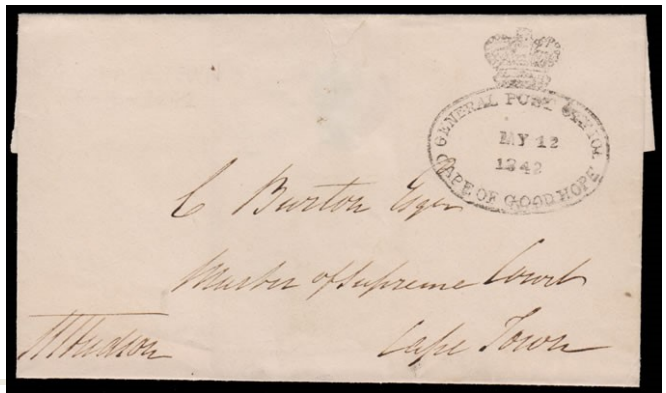 GENERAL POST OFFICE
MY 12
1842
CAPE OF GOOD HOPE
C Burton Esqr
Master of Supreme Court
Cape Town
Hudson